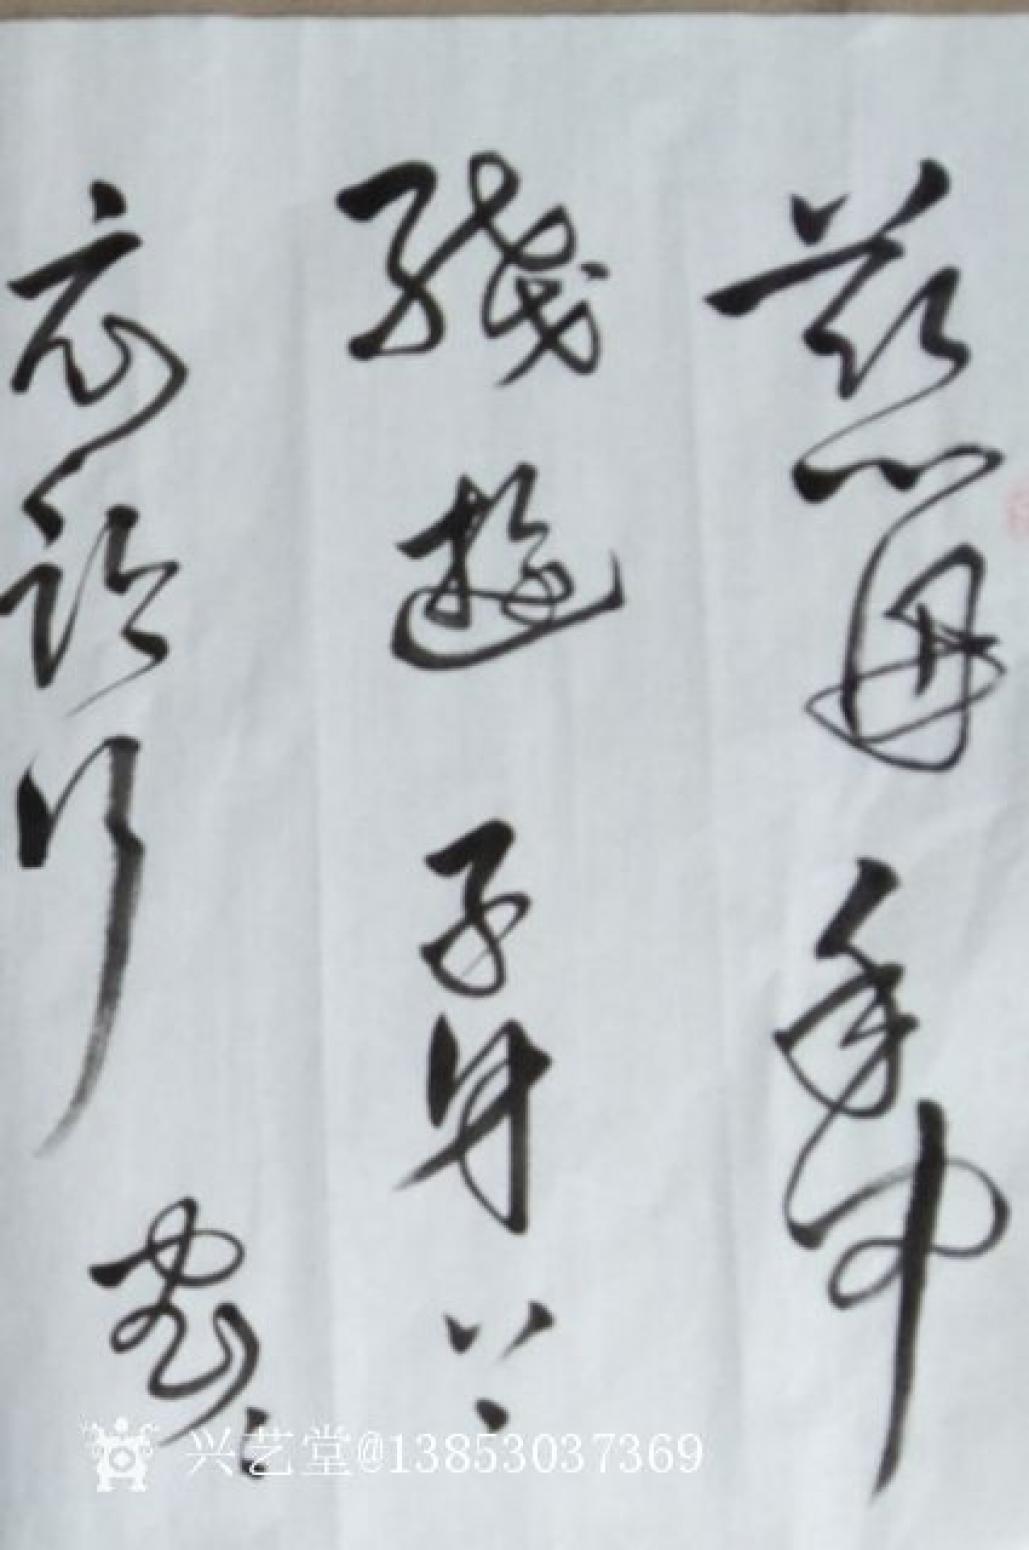 慈母手中
线游子身上
衣临行密
兴艺堂@13853037369